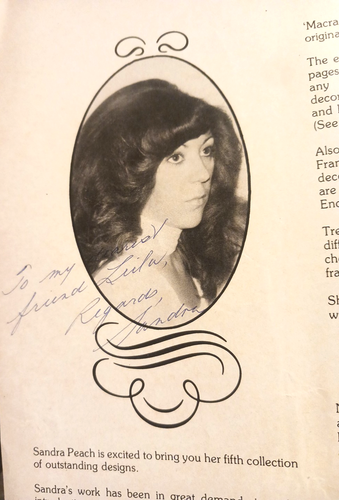 To my dearest
friend Leila,
Regards,
Sandra
Sandra Peach is excited to bring you her fifth collection
of outstanding designs.
Sandra's work has been in great demand
'Macra
origina
The e
pages
any
decor
and
(See
Also
Fran
deco
are
Enc
Tre
diff
che
fra
Sh
w